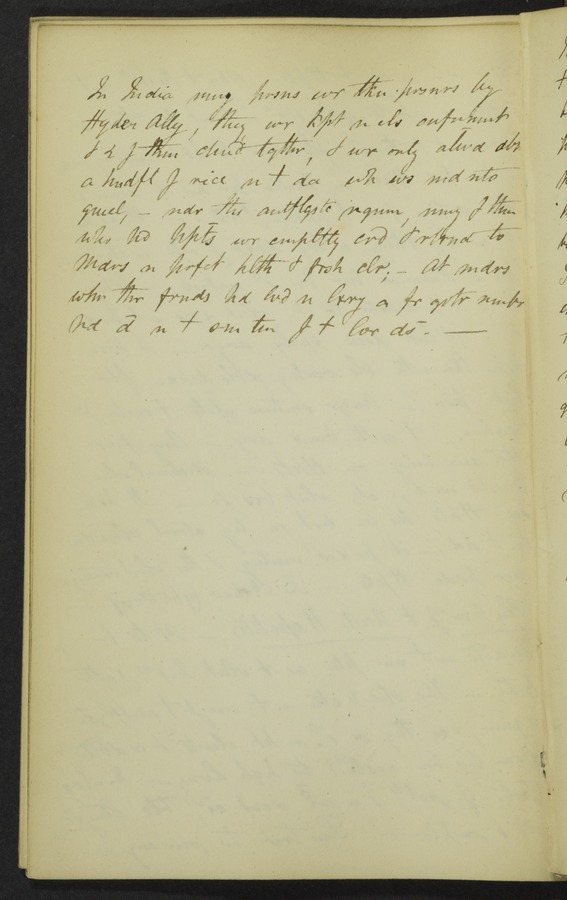 In India mny prsns wr thn prsnrs by
Hyder Ally, they wr kpt n cls confinmnt
& 2 J thm chnd tgthr, & wr only alwd abt
a hndfl J rice n t da wh ws md nto
gruel, — ndr ths antflgstc regmn, mny J thm
who hd hpts wr compltly crd & rtrnd to
Mdrs n prfct hlth & frsh clr; — at mdrs
whr thr frnds hd lvd n lxry a fr grtr numbr
hd d n t sm tm J t lvr ds. —